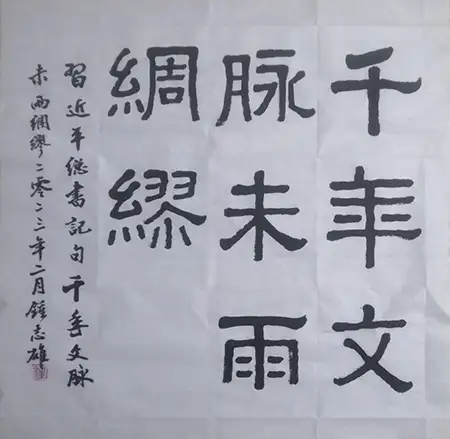 千年文
脉未雨
綢繆
習近平總書記句千年文脉
未雨綢繆二零二三年二月鍾志雄